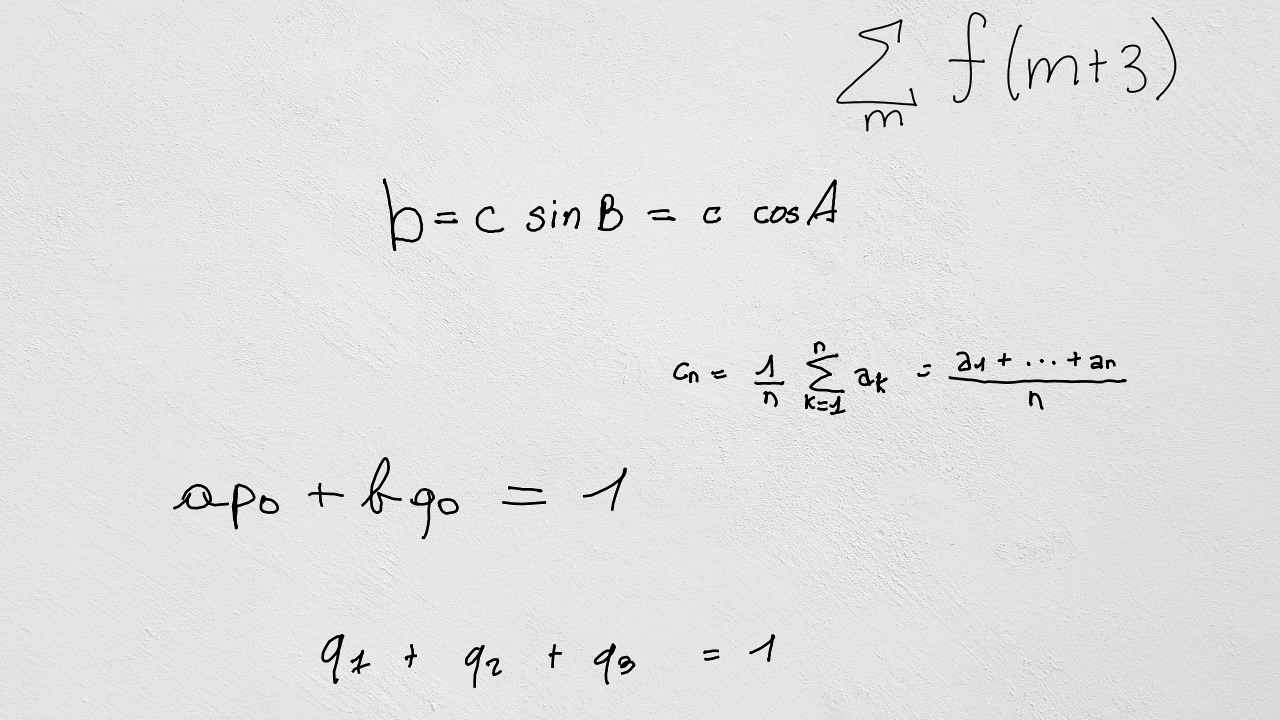 ∑_m f(m+3)
b = c sin B = c cos A
c_n = 1/n ∑_{k=1}^{n} a_k = (a_1 + ... + a_n)/n
ap_0 + bq_0 = 1
q_1 + q_2 + q_3 = 1